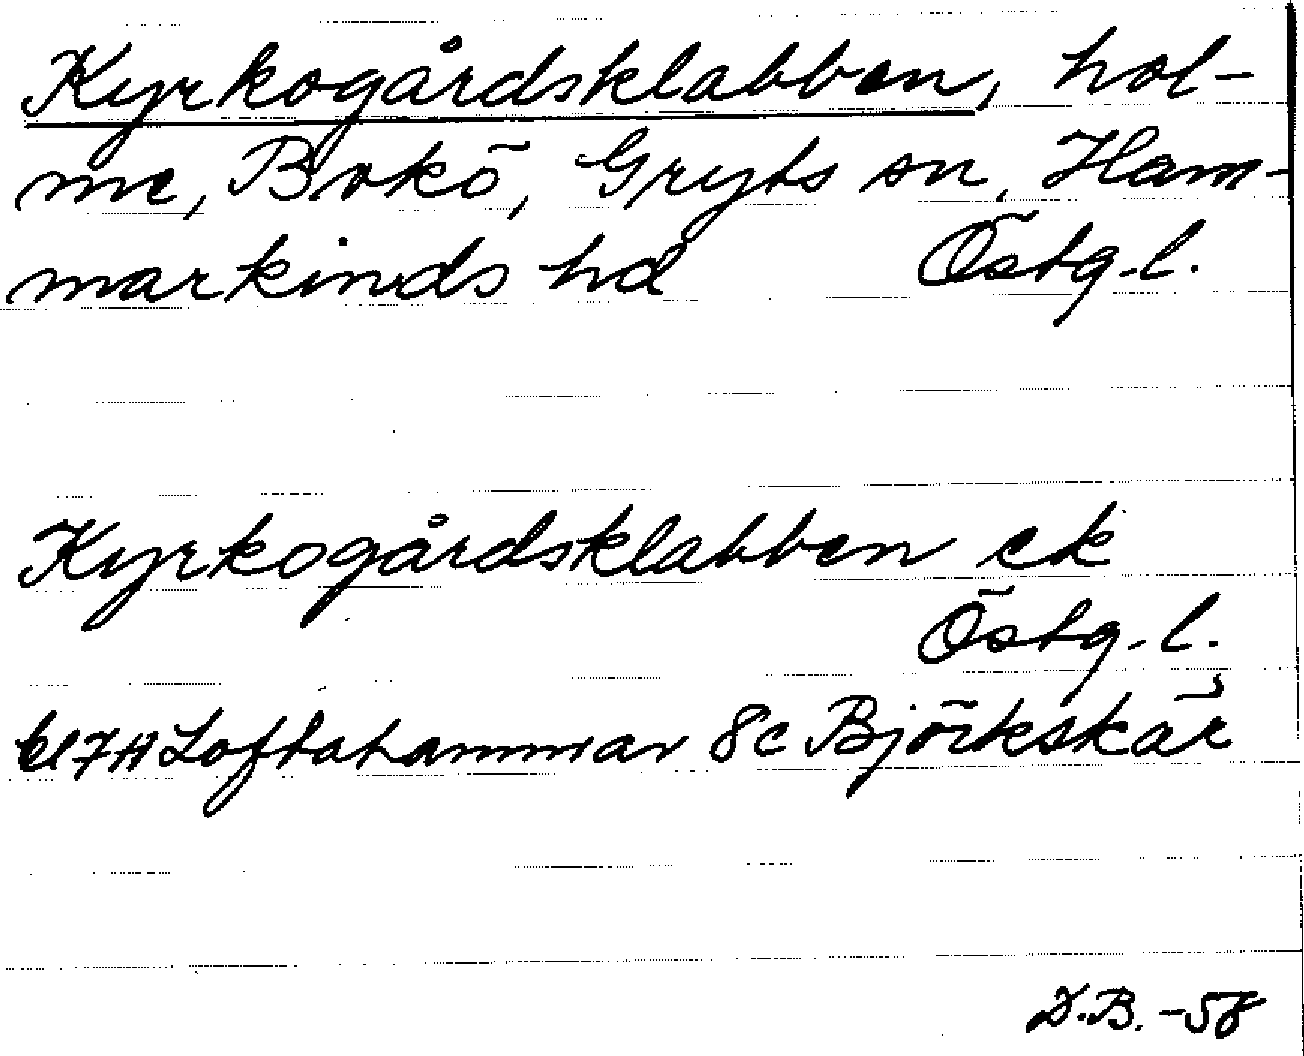 Kyrkogårdsklabben, hol-
me, Bokö, Gryts sn, Ham-
markinds hd Östg.l.
Kyrkogårdsklabben ek
Östg.l.
bl 7H Loftahammar 8c Björkskär
D.B. -58